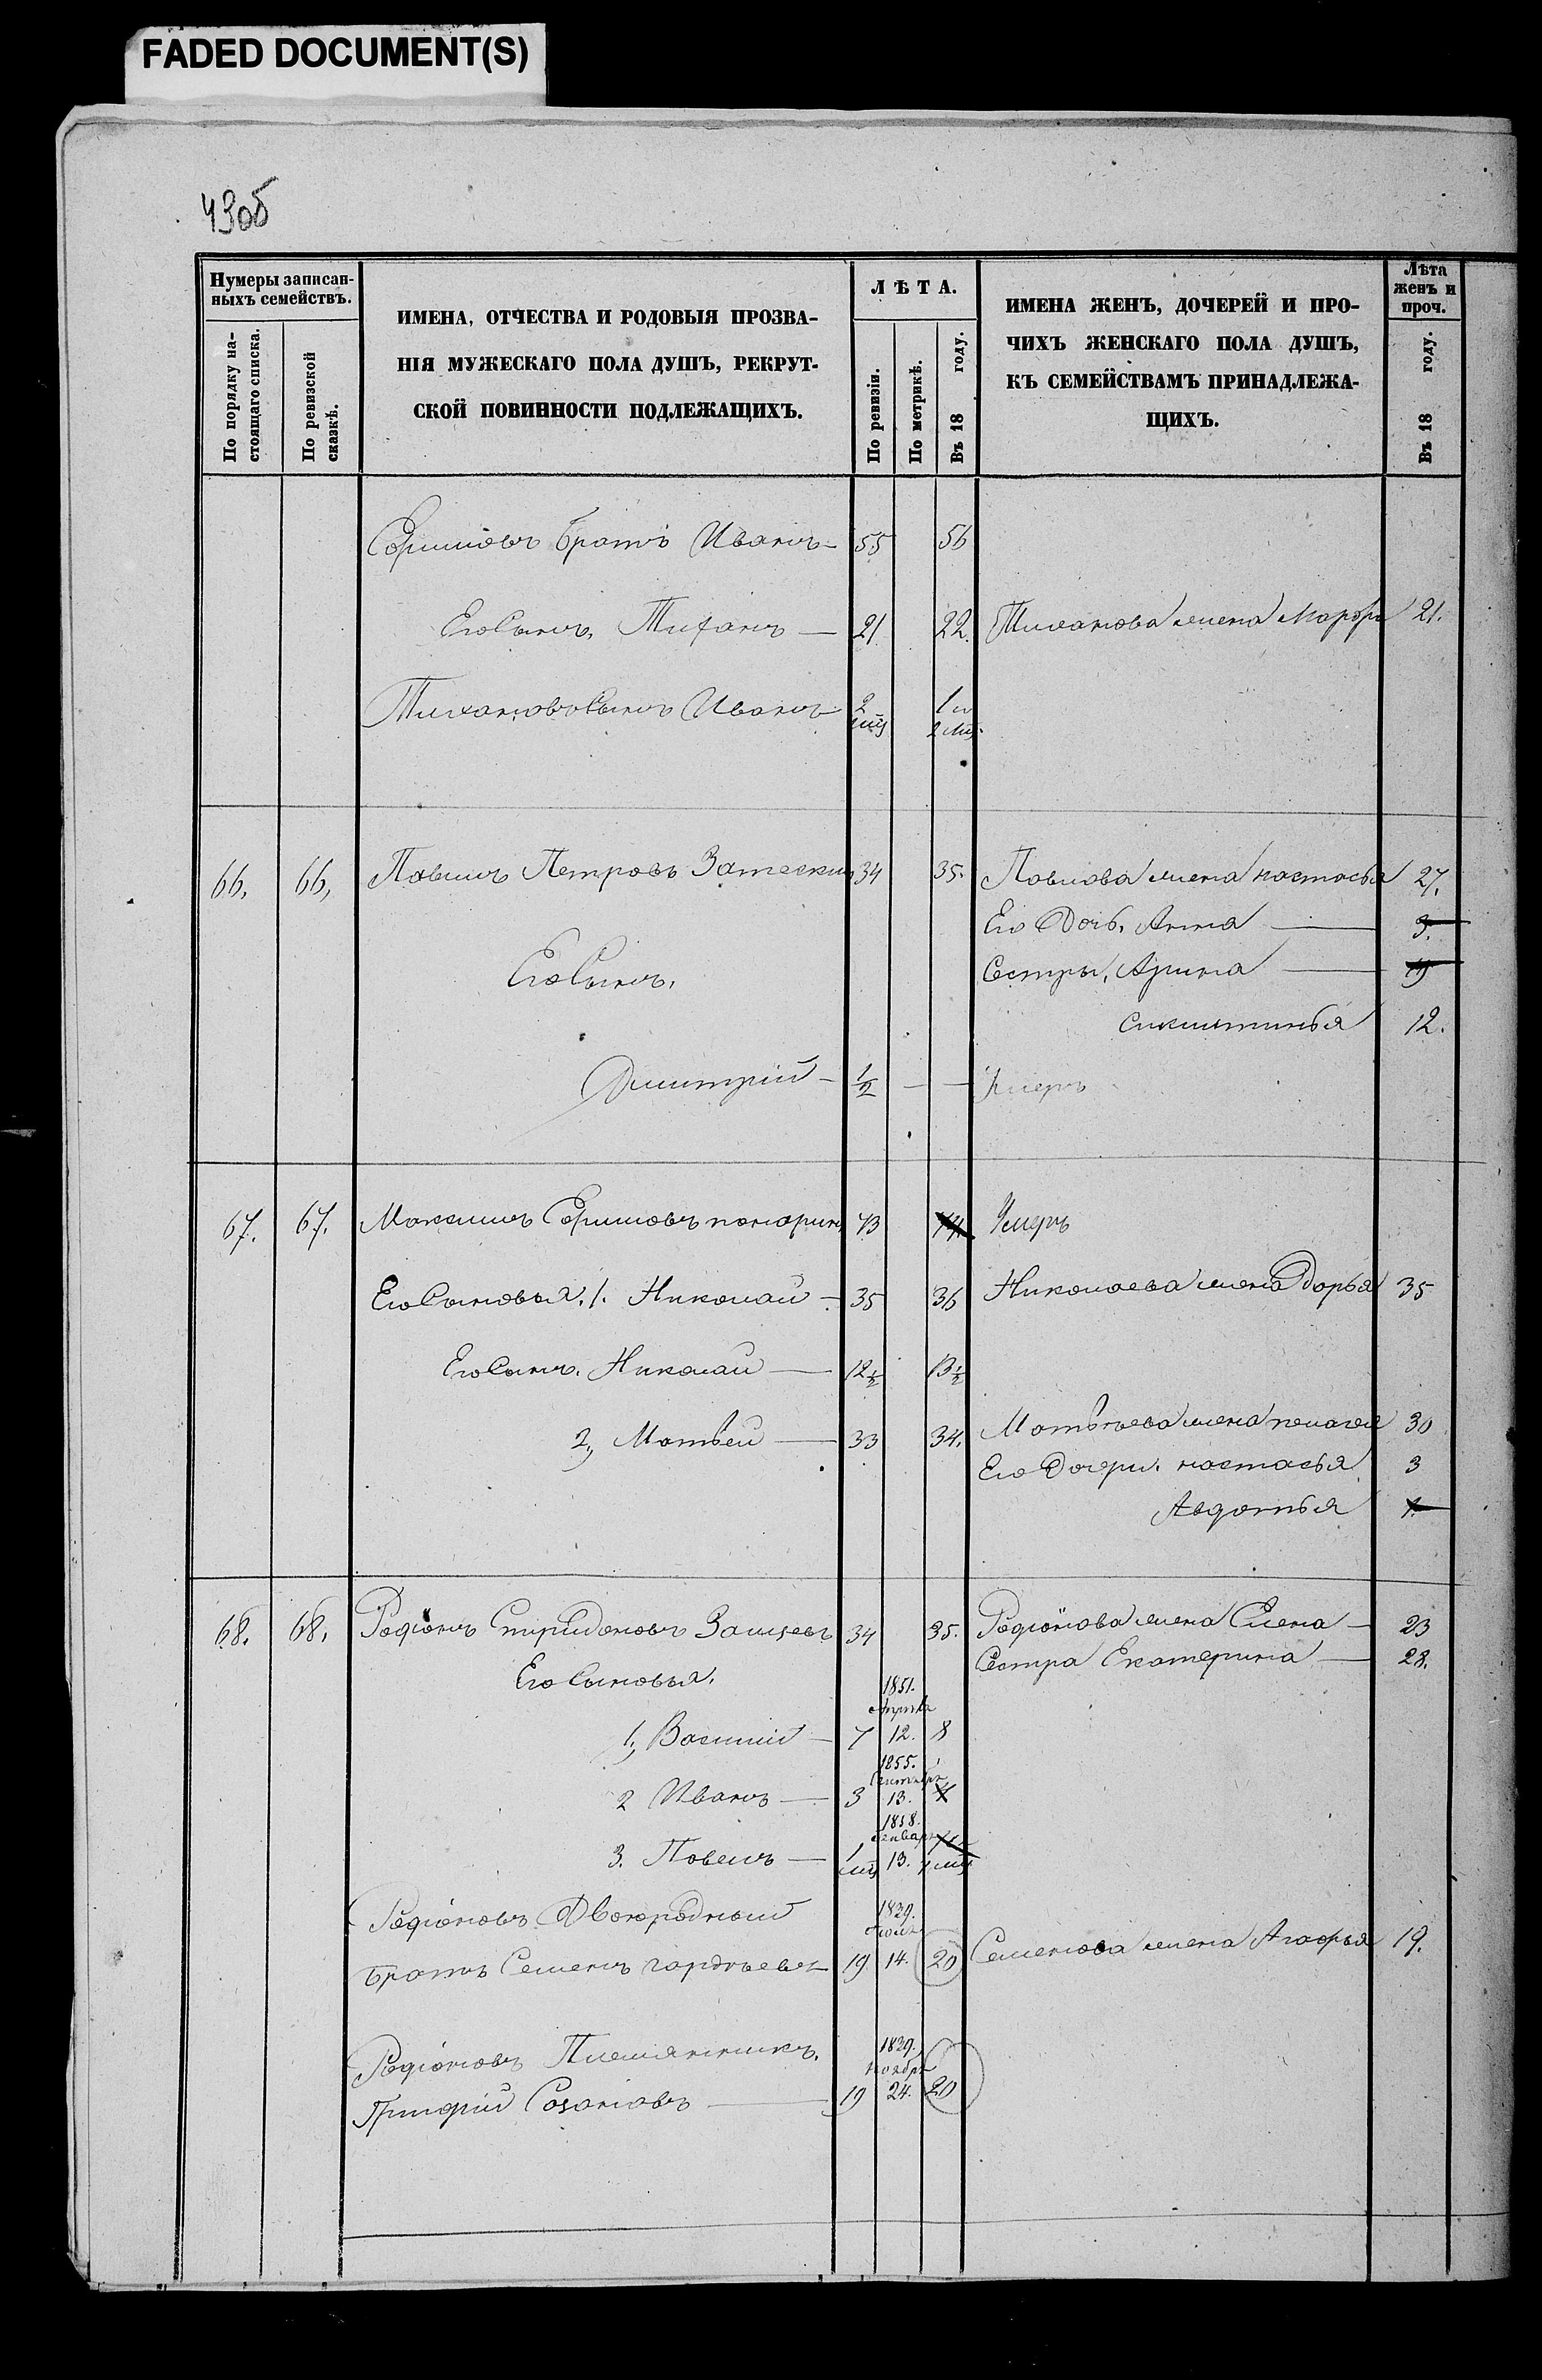 FADED DOCUMENT(S)
43об
Нумеры записан-
ныхъ семействъ.
По порядку на-
стоящаго списка.
По ревизской
сказкѣ.
ИМЕНА, ОТЧЕСТВА И РОДОВЫЯ ПРОЗВА-
НІЯ МУЖЕСКАГО ПОЛА ДУШЪ, РЕКРУТ-
СКОЙ ПОВИННОСТИ ПОДЛЕЖАЩИХЪ.
ЛѢТА.
По ревизіи.
По метрикѣ.
Въ 18 году.
ИМЕНА ЖЕНЪ, ДОЧЕРЕЙ И ПРО-
ЧИХЪ ЖЕНСКАГО ПОЛА ДУШЪ,
КЪ СЕМЕЙСТВАМЪ ПРИНАДЛЕЖА-
ЩИХЪ.
Лѣта
женъ и
проч.
Въ 18 году.
Братъ Иванъ 55 56
Его Сынъ, Тиханъ 21 22. Тиханова жена Марфа 21.
Тихановъ Сынъ Иванъ 2 мц 1 и 2 мц.
66. 66, Павелъ Петровъ 34 35. Павлова жена настасья 27.
Его Дочь, Анна 3.
Его Сынъ, Сестры, Арина
12.
Дмитрій ½ Умеръ
67. 67. Максимъ 73 74 Умеръ
Его Сыновья, 1. Николай 35 36 Николаева жена Дарья 35
Его Сынъ. Николай 12½ 13½
2, Матвѣй 33 34. Матвѣева жена пелагея 30
Его Дочери. настасья 3
Авдотья 1.
68. 68. Родіонъ Спиридоновъ Зайцевъ 34 35. Родіонова жена Елена 23
Сестра Екатерина 28.
Его Сыновья.
1851.
Апрѣля
1, Василій 7 12. 8
1855.
Сентября
2 Иванъ 3 13. 4
1858.
Генваря
3. Павелъ 1 мц 13.
Родіоновъ Двоюродный 1839.
Братъ Семенъ гордѣевъ 19 14. 20 Семенова жена Агафья 19.
Родіоновъ Племянникъ. 1839.
Ноября
Григорій Созоновъ 19 24. 20